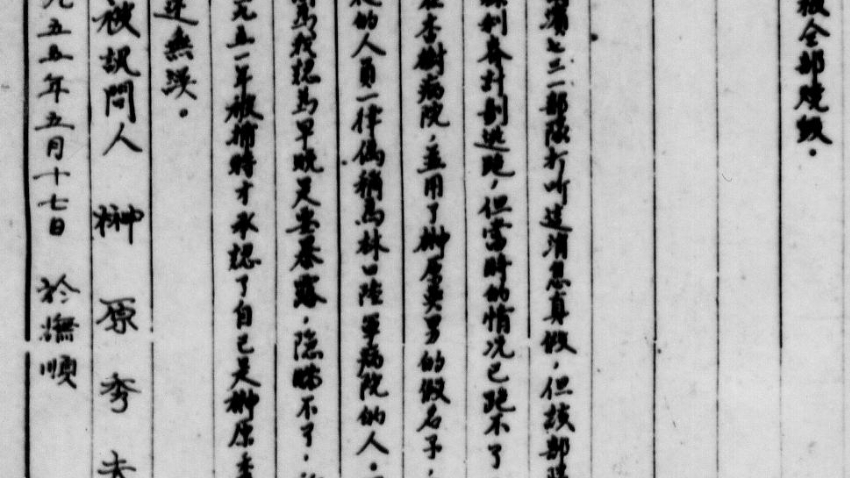 被全部燒毀。
七三一部隊打听這消息真假，但該部隊
計劃逃跑，但當時的情况已跑不了
在杏樹病院，並用了榊原英男的假名子，
的人員一律偽稱為林口陸軍病院的人。
為我認為早晚是要暴露，隐瞞不了，
九五一年被捕時才承認了自己是榊原秀
述無誤。
被訊問人 榊原秀夫
九五五年五月十七日 於撫順